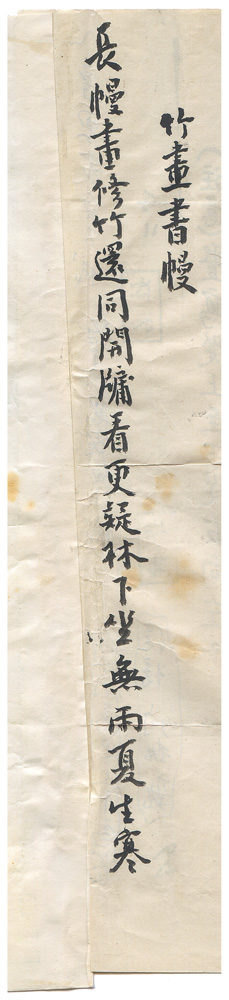 竹畫書幔
長幔畫修竹還同開牖看更疑林下坐無雨夏生寒